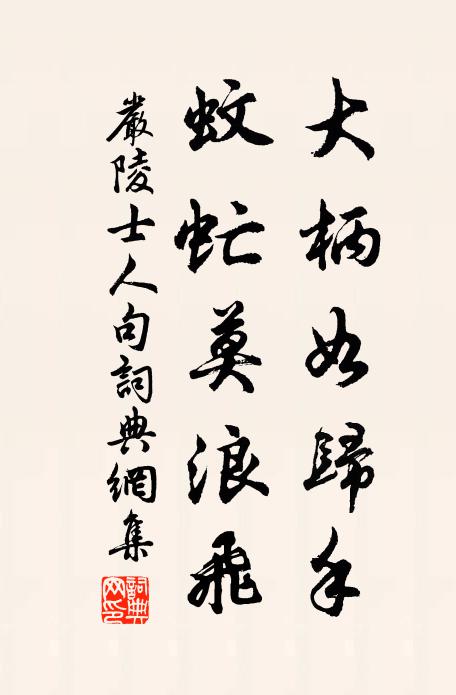 大柄如歸手
蚊虻莫浪飛
嚴陵士人句詞典網集
詞典網印